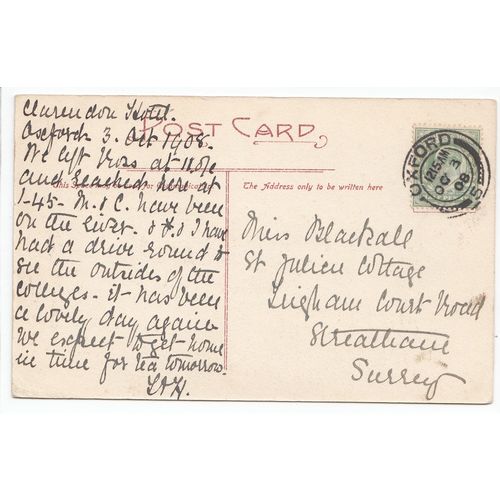 Clarendon Hotel.
Oxford. 3. Oct 1908.
POST CARD.
We left Ross at
and reached here at
1-45. M. & C. have been
on the river. & I have
had a drive round to
see the outsides of the
colleges. It has been
a lovely day again
We expect to get home
in time for tea tomorrow.
The Address only to be written here
OXFORD
12 AM
OC 3
08
Miss Blackall
St Julien Cottage
Leigham Court Road
Streatham
Surrey